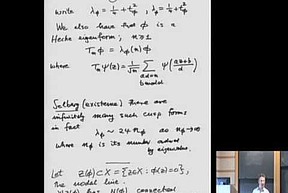 write λφ = 1/4 + t²φ , λφ = 1/4 + t²φ
We also have that φ is a
Hecke eigenform; n≥1
Tₙφ = λφ(n)φ
where
Tₙψ(z) = 1/√n Σ ψ((az+b)/d)
ad=n
b mod d
Selberg (existence) there are
infinitely many such cusp forms
in fact
λφ ~ 24 nφ as nφ→∞
where nφ is its number ordered
by eigenvalue.
Let Z(φ) ⊂ X = {z∈X : φ(z)=0},
the nodal line.